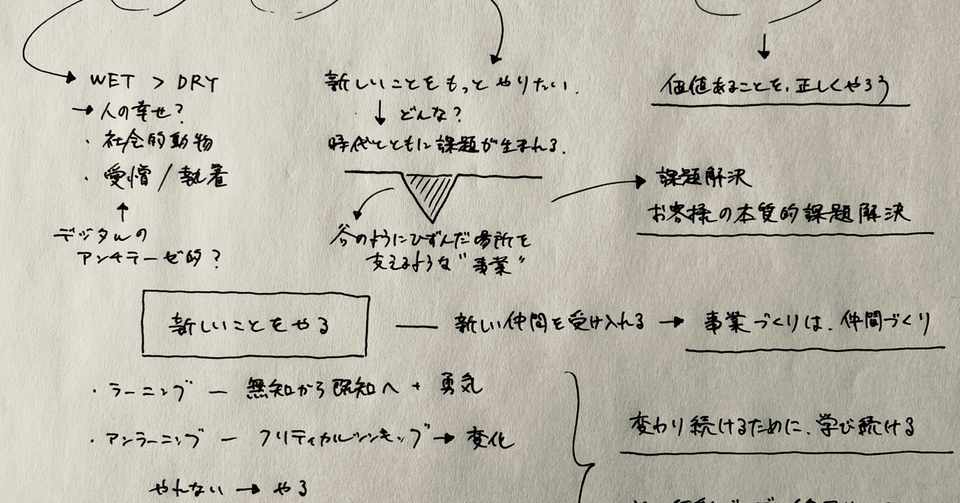 WET > DRY
→ 人の幸せ?
・社会的動物
・愛憎 / 執着
↑
デジタルの
アンチテーゼ的?
新しいことをもっとやりたい.
↓ どんな?
時代とともに課題が生まれる.
谷のようにひずんだ場所を
支えるような"事業"
↓
価値あることを、正しくやろう
課題解決
お客様の本質的課題解決
新しいことをやる — 新しい仲間を受け入れる → 事業づくりは、仲間づくり
・ラーニング — 無知から既知へ + 勇気
・アンラーニング — クリティカルシンキング → 変化
やれない → やる
変わり続けるために、学び続ける